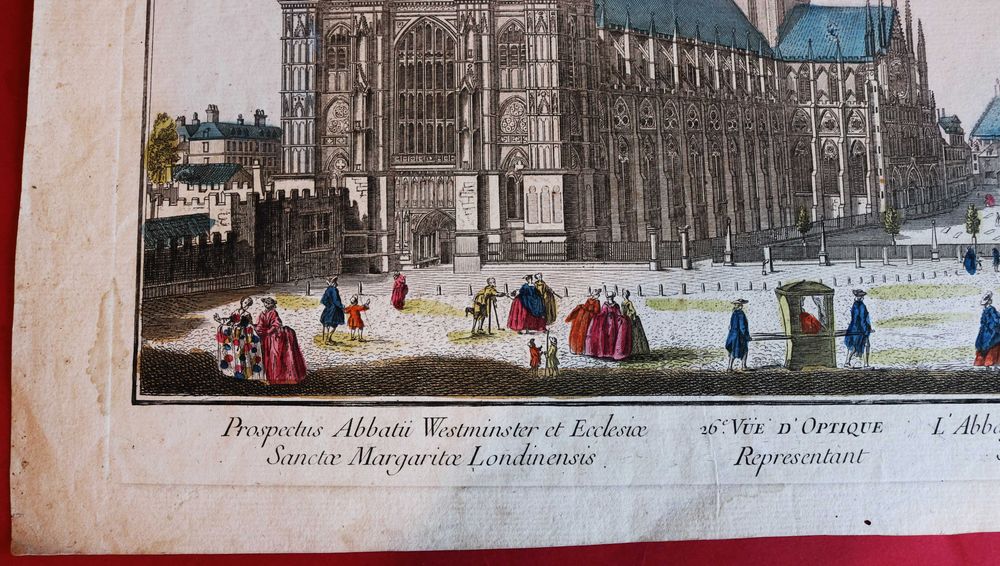 Prospectus Abbatiī Westminster et Ecclesiæ
Sanctæ Margaritæ Londinensis
26.e VÜE D'OPTIQUE
Representant
L'Abba